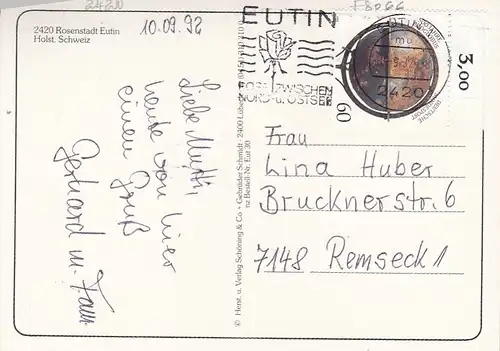 24230
10.09.92
F8066
2420 Rosenstadt Eutin
Holst. Schweiz
Liebe Mutti,
heute von hier
einen Gruß
Gerhard m. Fam
© Herst. u. Verlag Schöning & Co + Gebrüder Schmidt · 2400 Lübeck
nz Bestell-Nr. Eut 30
EUTIN
ROSE ZWISCHEN
NORD- u. OSTSEE
2420
60
3,00
Frau
Lina Huber
Brucknerstr. 6
7148 Remseck 1